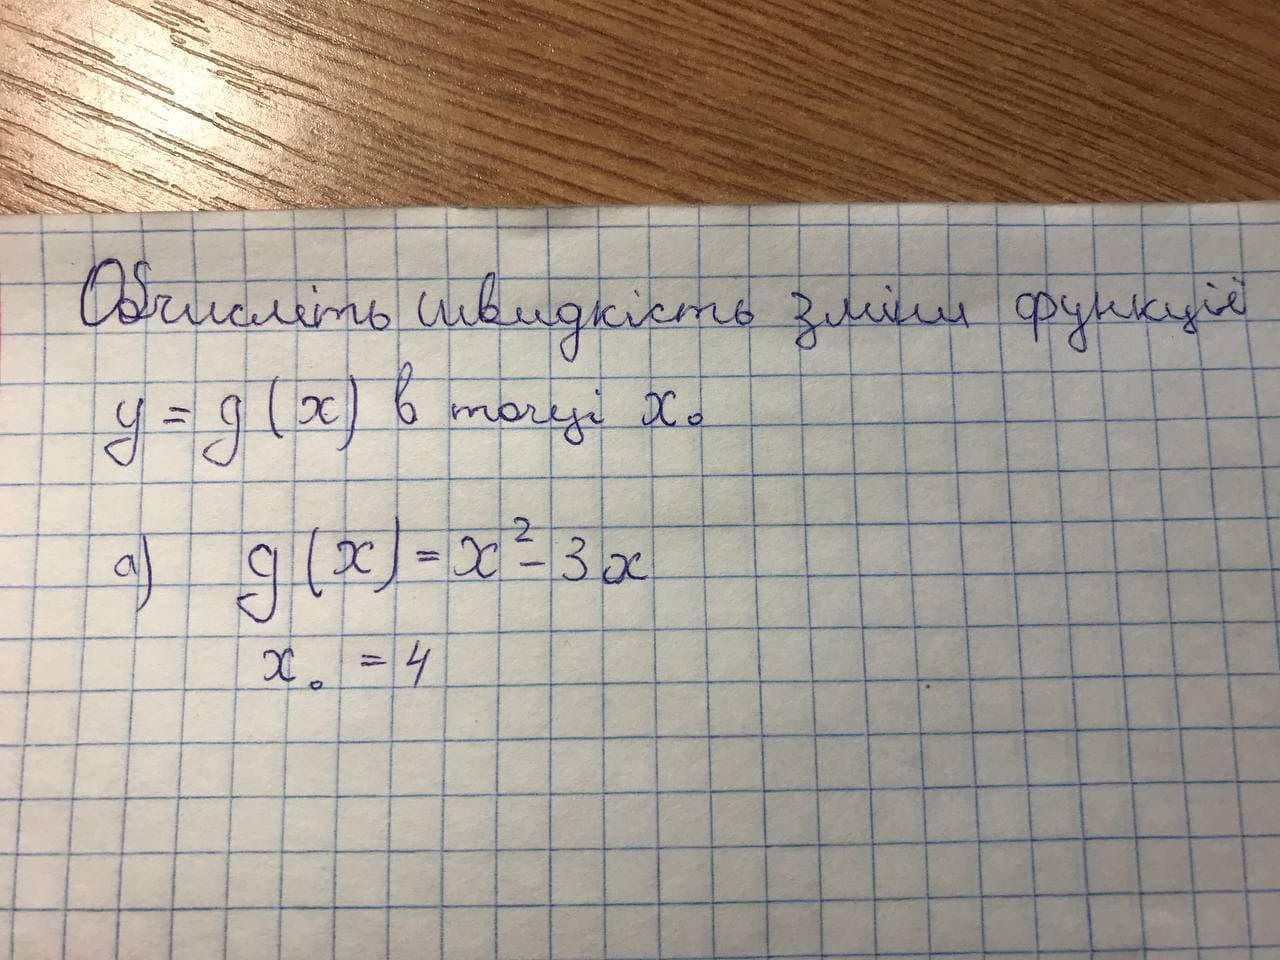 Обчисліть швидкість зміни функції
y = g(x) в точці x₀
а) g(x) = x² - 3x
x₀ = 4